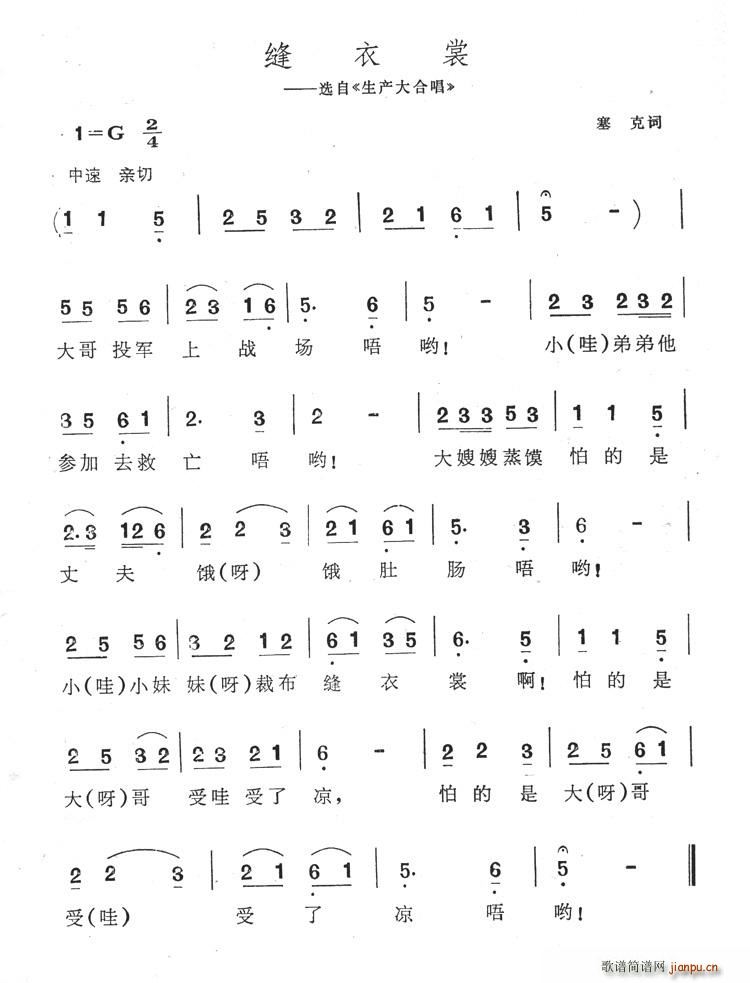 缝 衣 裳
——选自《生产大合唱》
1=G 2/4
塞 克词
中速 亲切
(1 1 5 | 2 5 3 2 | 2 1 6 1 | 5 - ) |
5 5 5 6 | 2 3 1 6 | 5. 6 | 5 - | 2 3 2 3 2 |
大哥投军 上 战 场 唔 哟! 小(哇)弟弟他
3 5 6 1 | 2. 3 | 2 - | 2 3 3 5 3 | 1 1 5 |
参加去救 亡 唔 哟! 大嫂嫂蒸馍 怕的是
2. 3 1 2 6 | 2 2 3 | 2 1 6 1 | 5. 3 | 6 - |
丈 夫 饿(呀) 饿肚 肠 唔 哟!
2 5 5 6 | 3 2 1 2 | 6 1 3 5 | 6. 5 | 1 1 5 |
小(哇)小妹 妹(呀)裁布 缝 衣 裳 啊! 怕的是
2 5 3 2 | 2 3 2 1 | 6 - | 2 2 3 | 2 5 6 1 |
大(呀)哥 受哇受了 凉, 怕的是 大(呀)哥
2 2 3 | 2 1 6 1 | 5. 6 | 5 - ‖
受(哇) 受 了 凉 唔 哟!
歌谱简谱网
jianpu.cn